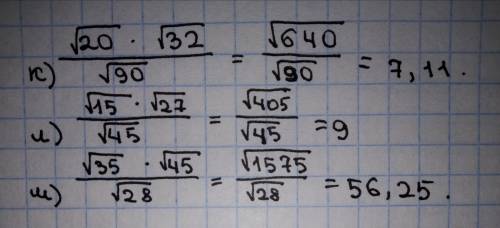 к) √20 · √32 / √90 = √640 / √90 = 7,11.
л) √15 · √27 / √45 = √405 / √45 = 9
м) √35 · √45 / √28 = √1575 / √28 = 56,25.